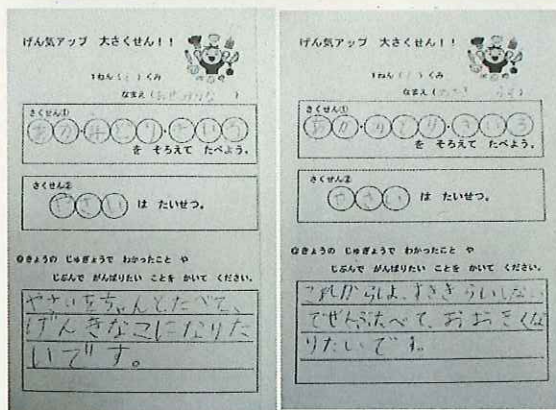 げん気アップ 大さくせん!!
1ねん( )くみ
なまえ( )
さくせん①
あか・みどり・きいろ
を そろえて たべよう。
さくせん②
やさい は たいせつ。
◎きょうの じゅぎょうで わかったこと や
じぶんで がんばりたい ことを かいて ください。
やさいをちゃんとたべて、
げんきなこになりた
いです。
げん気アップ 大さくせん!!
1ねん( )くみ
なまえ( )
さくせん①
あか・みどり・きいろ
を そろえて たべよう。
さくせん②
やさい は たいせつ。
◎きょうの じゅぎょうで わかったこと や
じぶんで がんばりたい ことを かいて ください。
これからは、すききらいしない
でぜんぶたべて、おおきくな
りたいです。